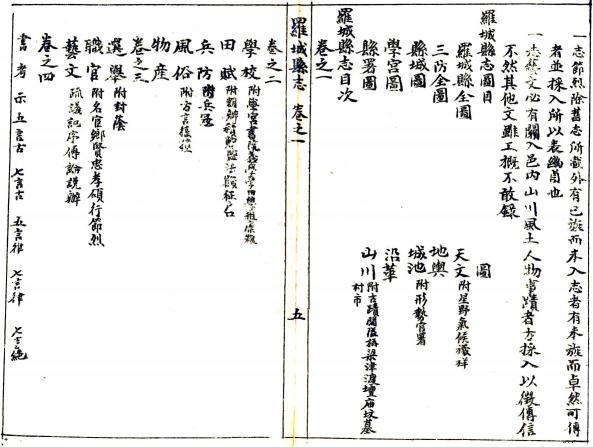 一志節烈除舊志所載外有已旌而未入志者有未旌而卓然可傳
者並採入所以表幽貞也
一志藝文必有關入邑内山川風土人物事蹟者方採入以徵傳信
不然其他文雖工概不敢錄
羅城縣志圖目
羅城縣全圖
三防全圖
縣城圖
學宮圖
縣署圖
羅城縣志目次
卷之一
圖
天文 附星野氣候禨祥
地輿
城池 附形勢官署
沿革
山川 附古蹟關隘橋梁津渡壇庙坟墓
村市
羅城縣志 卷之一 五
卷之二
學校
田賦
兵防
風俗
物産
卷之三
選舉 附封蔭
職官 附名官鄉賢忠孝碩行節烈
藝文 疏議記序傳論説辨
卷之四
五言古 七言古 五言律 七言律 七言絶